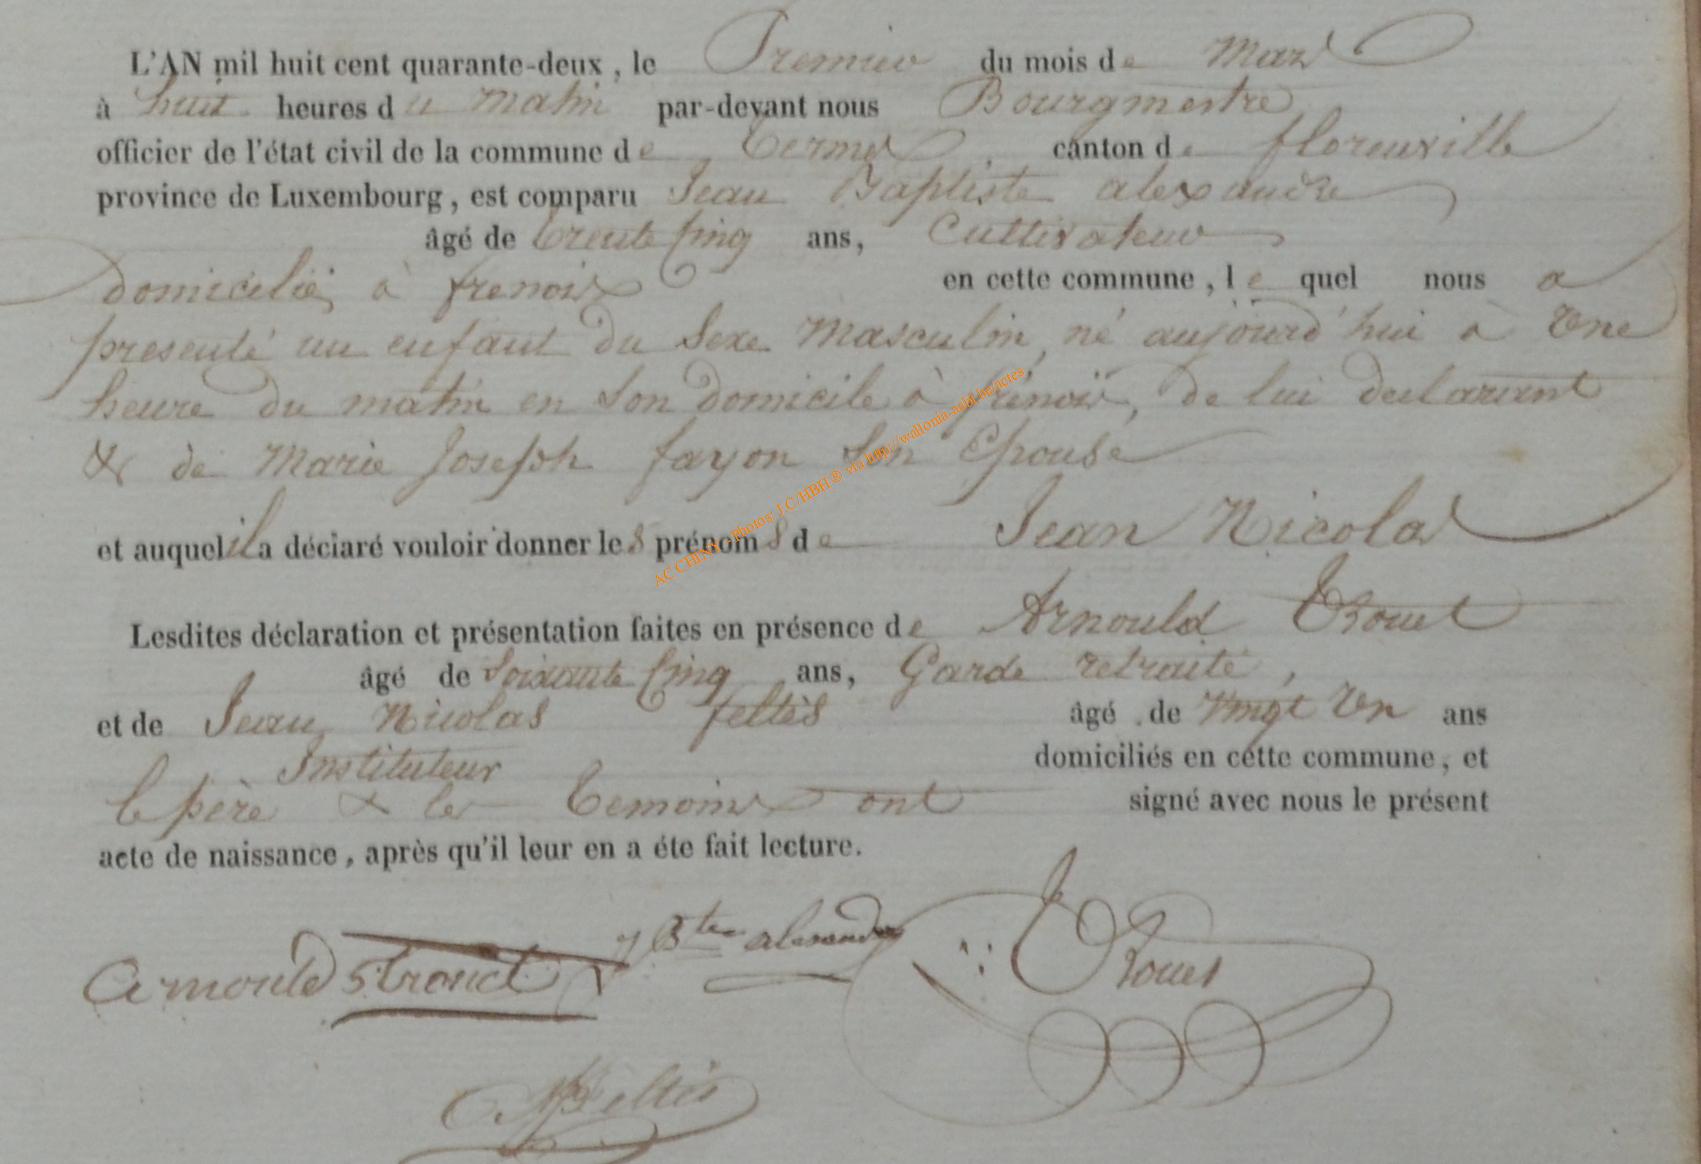 L'AN mil huit cent quarante-deux, le Premier du mois de Mars
à huit heures du matin par-devant nous Bourgmestre
officier de l'état civil de la commune de Termes, canton de florenville
province de Luxembourg, est comparu Jean Baptiste alexandre
âgé de trente cinq ans, Cultivateur
domicilié à frenois en cette commune, lequel nous a
presenté un enfant du sexe Masculin, né aujourd'hui à Une
heure du matin en son domicile à frénois, de lui declarant
& de Marie Joseph fayon son Epouse
et auquel il a déclaré vouloir donner les prénoms de Jean Nicolas
Lesdites déclaration et présentation faites en présence de Arnould
âgé de soixante cinq ans, Garde retraité,
et de Jean Nicolas feltès âgé de Vingt Un ans
Instituteur domiciliés en cette commune, et
le père & les temoins ont signé avec nous le présent
acte de naissance, après qu'il leur en a éte fait lecture.
J Bte alexandre
Arnould
feltès
AC CHINY - photos J.C HBH © via http://wallonia-asbl.be/actes